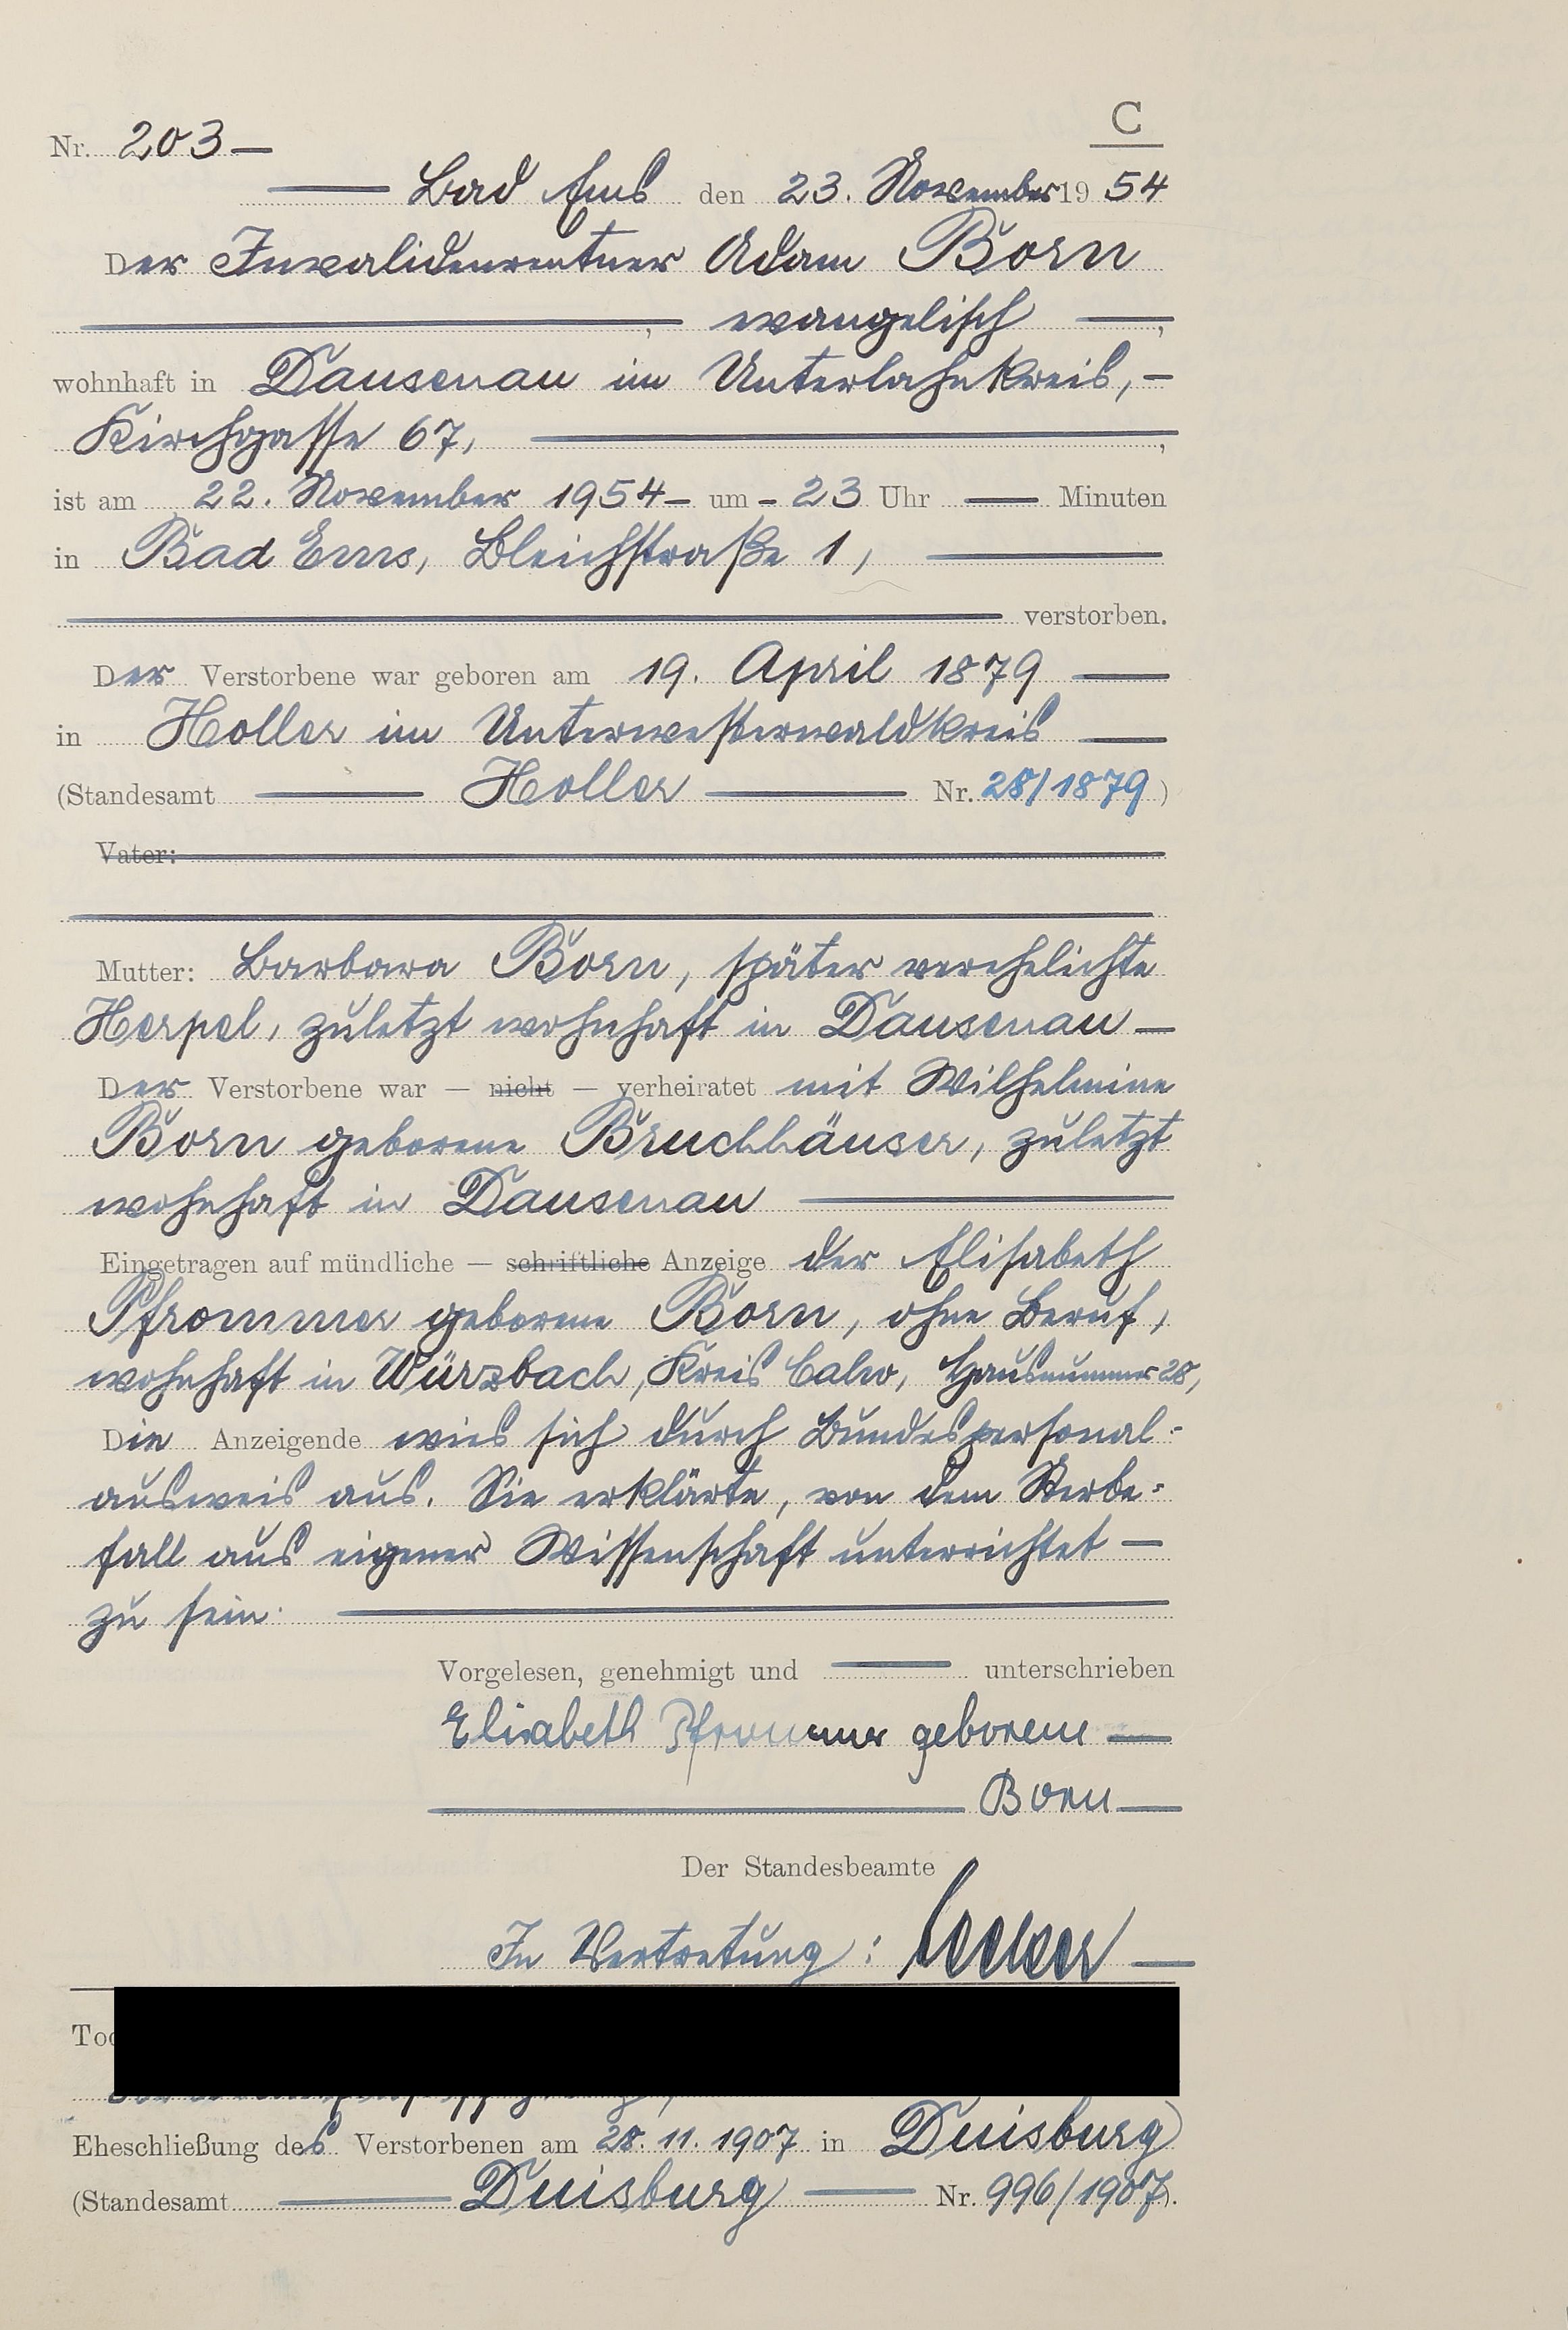 C
Nr. 203 —
Bad Ems den 23. November 1954
Der Invalidenrentner Adam Born
, evangelisch ,
wohnhaft in Dausenau im Unterlahnkreis, —
Kirchgasse 67, ,
ist am 22. November 1954 — um — 23 Uhr — Minuten
in Bad Ems, Bleichstraße 1,
verstorben.
Der Verstorbene war geboren am 19. April 1879
in Holler im Unterwesterwaldkreis
(Standesamt Holler Nr. 28/1879)
Vater:
Mutter: Barbara Born, später verehelichte
Herpel, zuletzt wohnhaft in Dausenau —
Der Verstorbene war — nicht — verheiratet mit Wilhelmine
Born geborene Bruchhäuser, zuletzt
wohnhaft in Dausenau
Eingetragen auf mündliche — schriftliche Anzeige der Elisabeth
Pfrommer geborene Born, ohne Beruf,
wohnhaft in Würzbach, Kreis Calw, Hausnummer 28,
Die Anzeigende wies sich durch Bundespersonal-
ausweis aus. Sie erklärte, von dem Sterbe-
fall aus eigener Wissenschaft unterrichtet —
zu sein.
Vorgelesen, genehmigt und — unterschrieben
Elisabeth Pfrommer geborene —
Born —
Der Standesbeamte
In Vertretung:
Eheschließung des Verstorbenen am 28. 11. 1907 in Duisburg
(Standesamt Duisburg Nr. 996/1907).